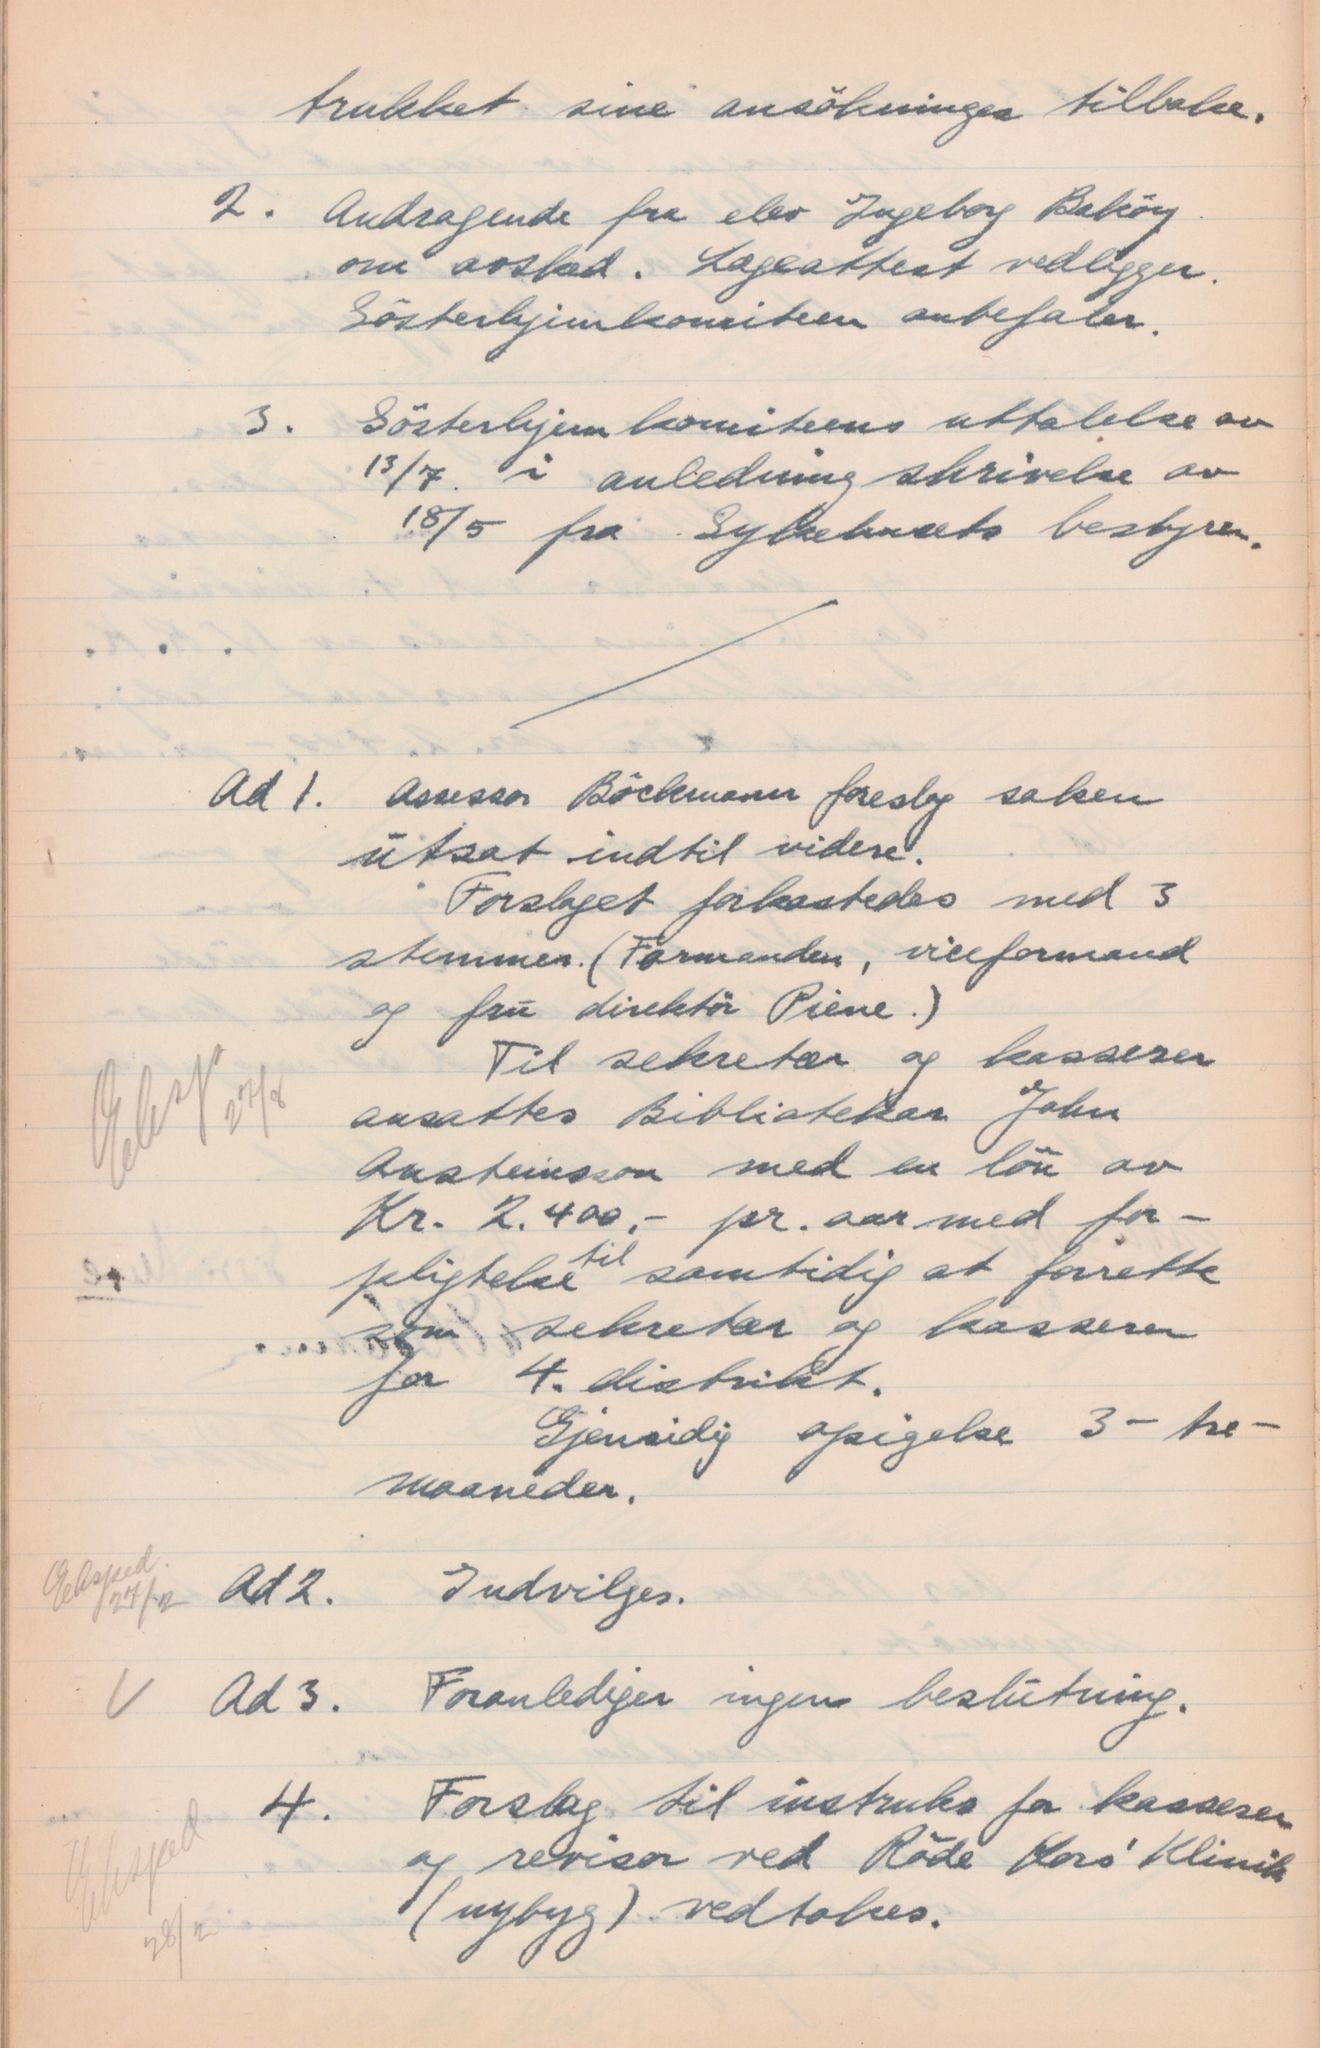 trukket sine ansökninger tilbake.
2. Andragende fra elev Ingeborg Baköy
om avsked. Lægeattest vedligger.
Sösterhjemkomiteen anbefaler.
3. Sösterhjemkomiteens uttalelse av
13/7 i anledning skrivelse av
18/5 fra Sykehusets bestyrer.
Ad 1. Assessor Böckmann foreslog saken
utsat indtil videre.
Forslaget forkastedes med 3
stemmer. (Formanden, viceformand
og fru direktör Piene.)
Til sekretær og kasserer
Eksp. 27/8
ansattes Bibliotekar John
Ansteinsson med en lön av
Kr. 2.400,- pr. aar med for-
pligtelse til samtidig at forrette
som sekretær og kasserer
for 4. distrikt.
Gjensidig opsigelse 3 - tre -
maaneder.
Eksped. 27/2
Ad 2. Indvilges.
V Ad 3. Foranlediger ingen beslutning.
4. Forslag til instruks for kasserer
og revisor ved Röde Kors' Klinik
(nybyg) vedtokes.
Eksped 28/2